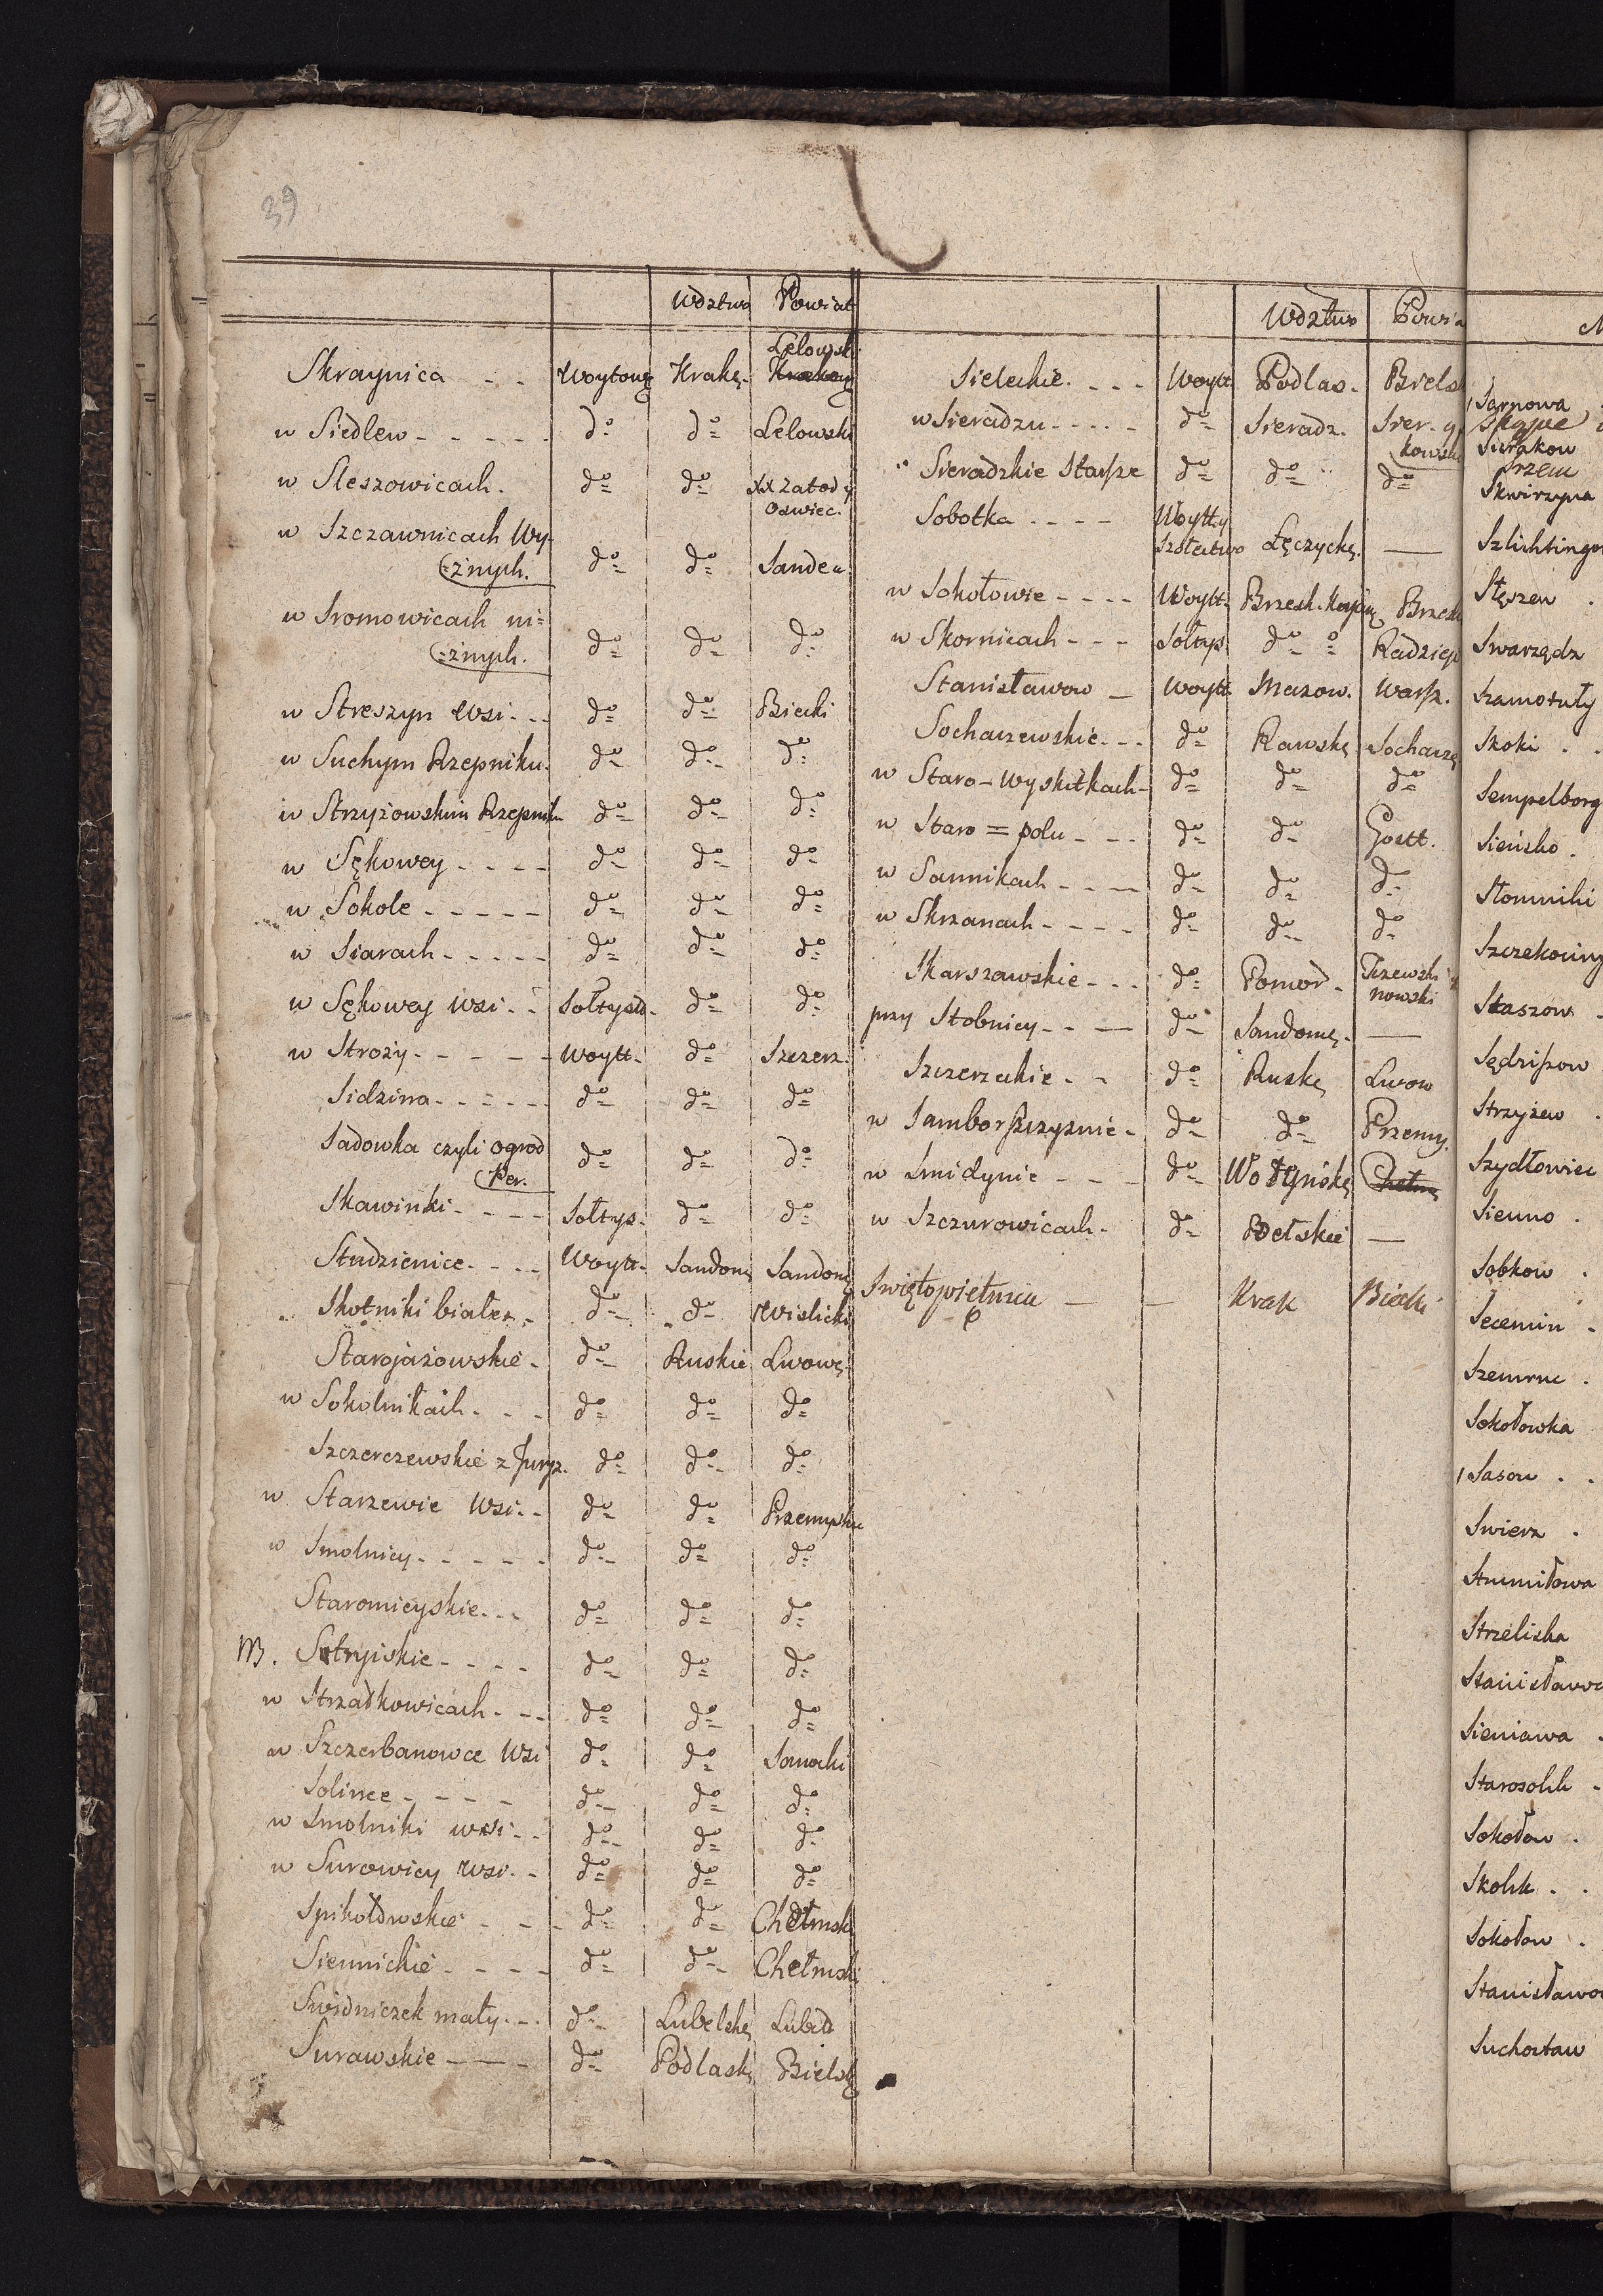 39
Wdztwo Powiat
Lelowski
Skraynica - - Woytows Krakę. Krakow
w Siedlew - - - - - do do Lelowski
w Sleszowicach. do do xx Zatod y
Oswiec.
w Szczawnicach Wy-
=żnych. do do Sandec.
w Sromowicach ni=
=żnych. do do do
w Streszyn Wsi - - - do do Biecki
w Suchym Rzepniku. do do do
w Strzyżowskim Rzepniku do do do
w Sękowey - - - - do do do
w Sokole - - - - - do do do
w Siarach - - - - - do do do
w Sękowey wsi - - Sołtysd. do do
w Stroży - - - - - Woytt. do Szczerz.
Sidzina - - - - - - do do do
Sadowka czyli ogrod
Per. do do do
Skawinki - - - - Sołtys. do do
Studzienice - - - - Woytt. Sandom Sandomę
Skotniki białe - - do do Wislicki
Starojażowskie - do Ruskie Lwowę.
w Sokolnikach - - - do do do
Szczerczewskie z Juryz. do do do
w Starzewie Wsi - - do do Przemyskie
w Smolnicy - - - - - do do do
Staromieyskie - - - do do do
M. Stryiskie - - - - do do do
w Strzałkowicach - - - do do do
w Szczerbanowce Wsi do do Sanocki
Solince - - - - do do do
w Smolniki wsi - - do do do
w Surowicy Wsi - - do do do
Spikołowskie - - - do do Chełmski
Siennickie - - - - do do Chełmski
Swidniczek mały - - - do Lubelskę Lubel
Surawskie - - - do Podlaskę Bielskę
Wdztwo Powia
Sieleckie - - - - Woytt Podlas. Bielsk
w Sieradzu - - - - - do Sieradz. Sier. y
kowski
Sieradzkie Starsze do do do
Sobotka - - - - Woytt y
Szołectwo Łęczyckę. —
w Sokołowie - - - - Woytt. Brzesk. Kujawę Brzesk
w Skornicach - - - Sołtys. do Radziej
Stanisławow — Woytt. Mazow. Warsz.
Sochaczewskie - - - do Rawskę Sochaczę
w Staro-Wyskitkach - do do do
w Staro = polu - - - do do Gostt.
w Sannikach - - - do do do
w Skrzanach - - - - do do do
Skarszawskie - - - do Pomor. Tczewski y
nowski
przy Stobnicy - - - do Sandomę. —
Szczerzeckie - - do Ruskę Lwow
w Samborszczyznie - do do Przemy.
w Smidynie - - - do Wołyńskę Chełmę
w Szczurowicach. do Bełskie —
Swiętopietrnia — — Krak Biecki
Sarnowa
Skąpe
Sierakow
Srzem
Skwirzyna
Szlichtinger
Stęszew .
Swarzędz
Szamotuły
Skoki . .
Sempelborg
Sieńsko .
Słomniki
Szczekociny
Staszow -
Sędziszow
Strzyżew .
Szydłowiec
Sienno .
Sobkow .
Secemin -
Szemrue .
Sokołowka
Sasow . .
Swierz .
Strumiłowa
Strzeliska
Stanisławo
Sieniawa .
Starosolk -
Sokołow .
Skolk . .
Sokołow .
Stanisławow
Suchostaw